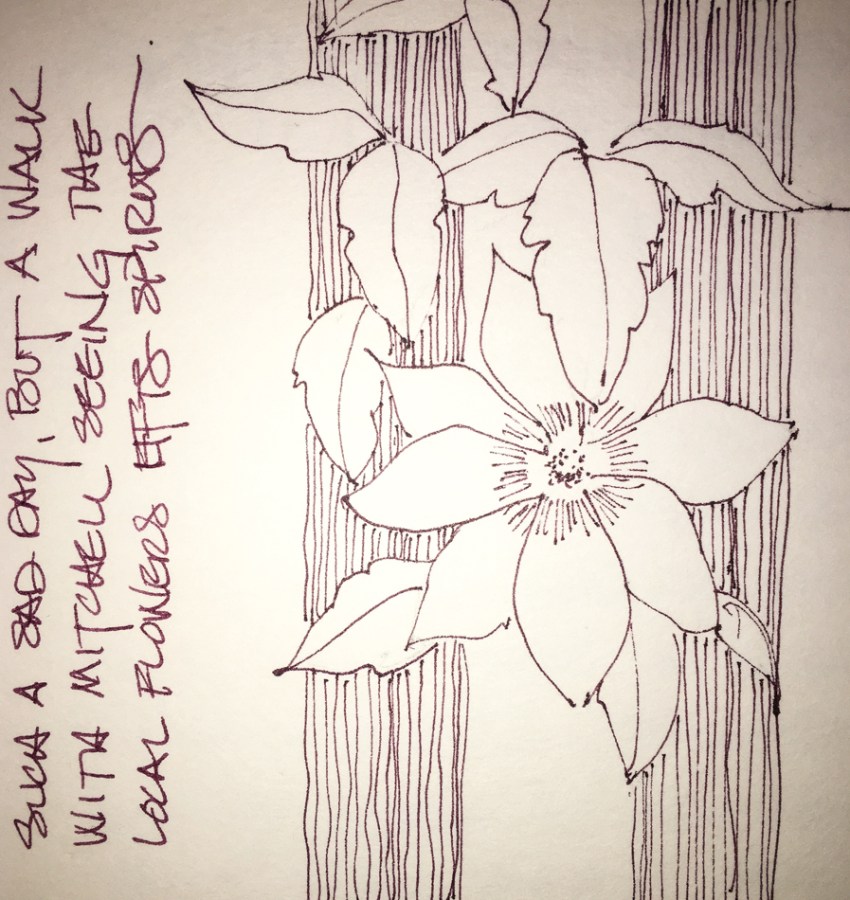 SUCH A SAD DAY, BUT A WALK
WITH MITCHELL SEEING THE
LOCAL FLOWERS LIFTS SPIRITS